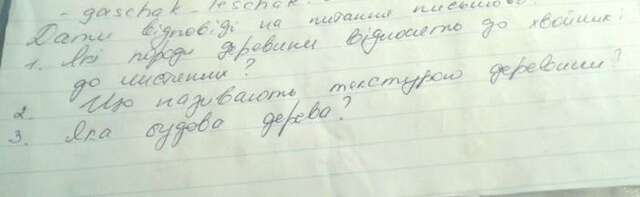 - gaschak-teschak
Дати відповіді на питання письмово
1. Які породи деревини відносять до хвойних і
до листяних?
2. Що називають текстурою деревини?
3. Яка будова дерева?